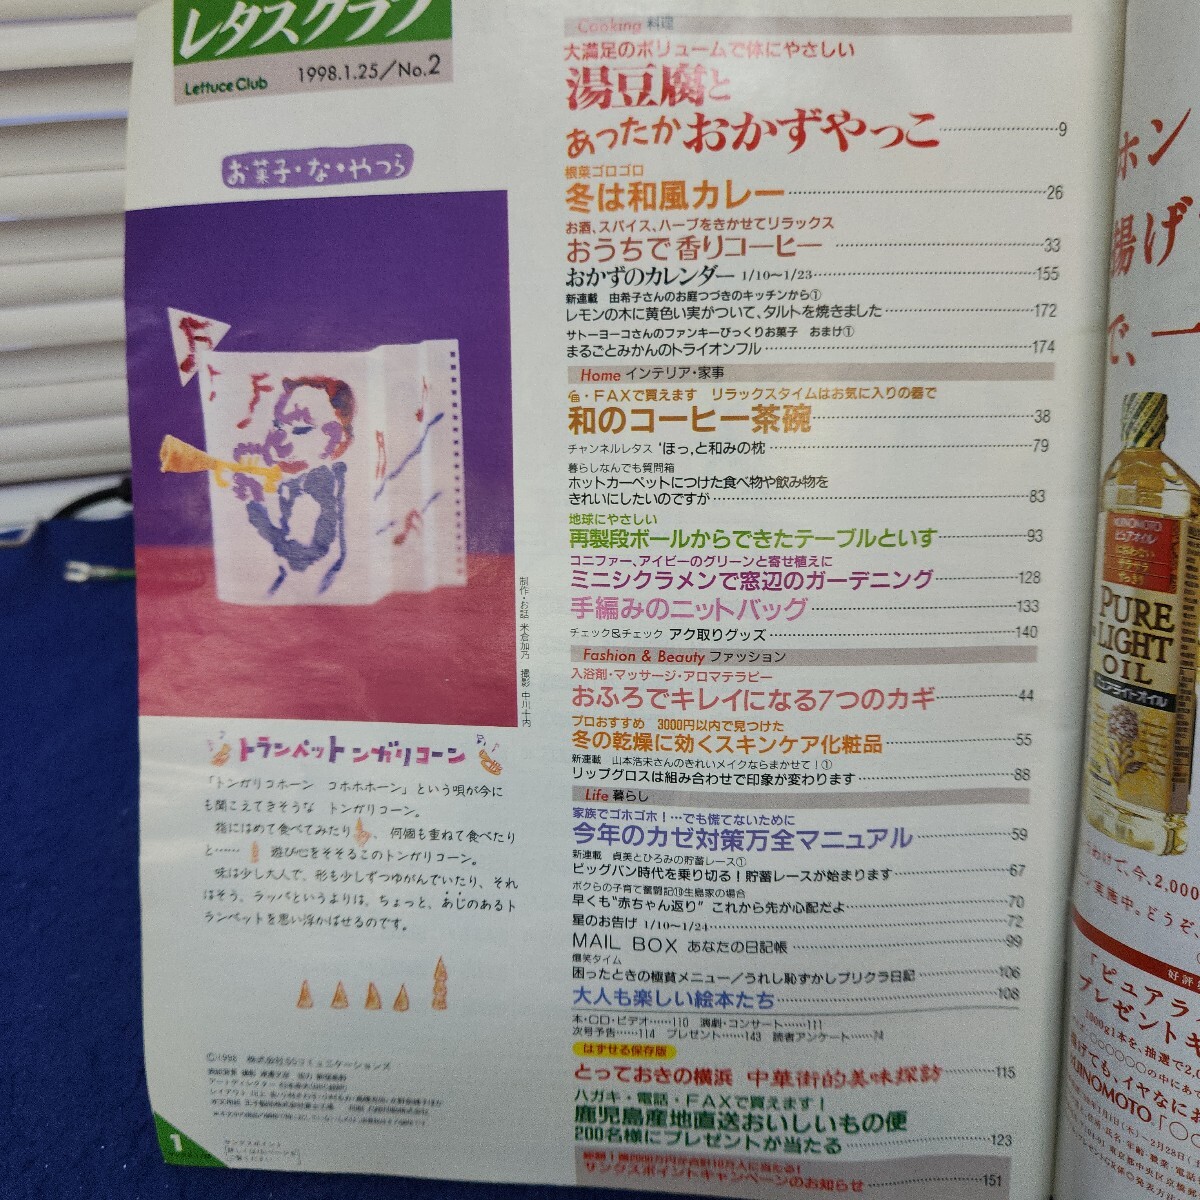 レタスクラブ
Lettuce Club
1998.1.25/No.2
お菓子・な・やつら
制作・お話 米倉加乃 撮影 中川十内
トランペット ンガリコーン
「トンガリコホーン コホホホーン」という唄が今に
も聞こえてきそうな トンガリコーン。
指にはめて食べてみたり、何個も重ねて食べたり
と…… 遊び心をそそるこのトンガリコーン。
味は少し大人で、形も少しずつゆがんでいたり、それ
はそう、ラッパというよりは、ちょっと、あじのあるト
ランペットを思い浮かばせるのです。
1
Cooking 料理
大満足のボリュームで体にやさしい
湯豆腐と
あったかおかずやっこ……9
根菜ゴロゴロ
冬は和風カレー……26
お酒、スパイス、ハーブをきかせてリラックス
おうちで香りコーヒー……33
おかずのカレンダー 1/10〜1/23……155
新連載 由希子さんのお庭つづきのキッチンから①
レモンの木に黄色い実がついて、タルトを焼きました……172
サトーヨーコさんのファンキーびっくりお菓子 おまけ①
まるごとみかんのトライオンフル……174
Home インテリア・家事
・FAXで買えます リラックスタイムはお気に入りの器で
和のコーヒー茶碗……38
チャンネルレタス ‘ほっ,と和みの枕……79
暮らしなんでも質問箱
ホットカーペットにつけた食べ物や飲み物を
きれいにしたいのですが……83
地球にやさしい
再製段ボールからできたテーブルといす……93
コニファー、アイビーのグリーンと寄せ植えに
ミニシクラメンで窓辺のガーデニング……128
手編みのニットバッグ……133
チェック&チェック アク取りグッズ……140
Fashion & Beauty ファッション
入浴剤・マッサージ・アロマテラピー
おふろでキレイになる7つのカギ……44
プロおすすめ 3000円以内で見つけた
冬の乾燥に効くスキンケア化粧品……55
新連載 山本浩未さんのきれいメイクならまかせて!①
リップグロスは組み合わせで印象が変わります……88
Life 暮らし
家族でゴホゴホ!…でも慌てないために
今年のカゼ対策万全マニュアル……59
新連載 貞美とひろみの貯蓄レース①
ビッグバン時代を乗り切る!貯蓄レースが始まります……67
ボクらの子育て奮闘記⑩生島家の場合
早くも“赤ちゃん返り” これから先が心配だよ……70
星のお告げ 1/10〜1/24……72
MAIL BOX あなたの日記帳……99
爆笑タイム
困ったときの極貧メニュー/うれし恥ずかしプリクラ日記……106
大人も楽しい絵本たち……108
本・CD・ビデオ……110 演劇・コンサート……111
次号予告……114 プレゼント……143 読者アンケート……N
はずせる保存版
とっておきの横浜 中華街的美味探訪……115
ハガキ・電話・FAXで買えます!
鹿児島産地直送おいしいもの便
200名様にプレゼントが当たる……123
サンクスポイントキャンペーンのお知らせ……151
©1998 株式会社SSコミュニケーションズ
サンクスポイント
AJINOMOTO
ピュアオイル
PURE
LIGHT
OIL
ピュアライトオイル